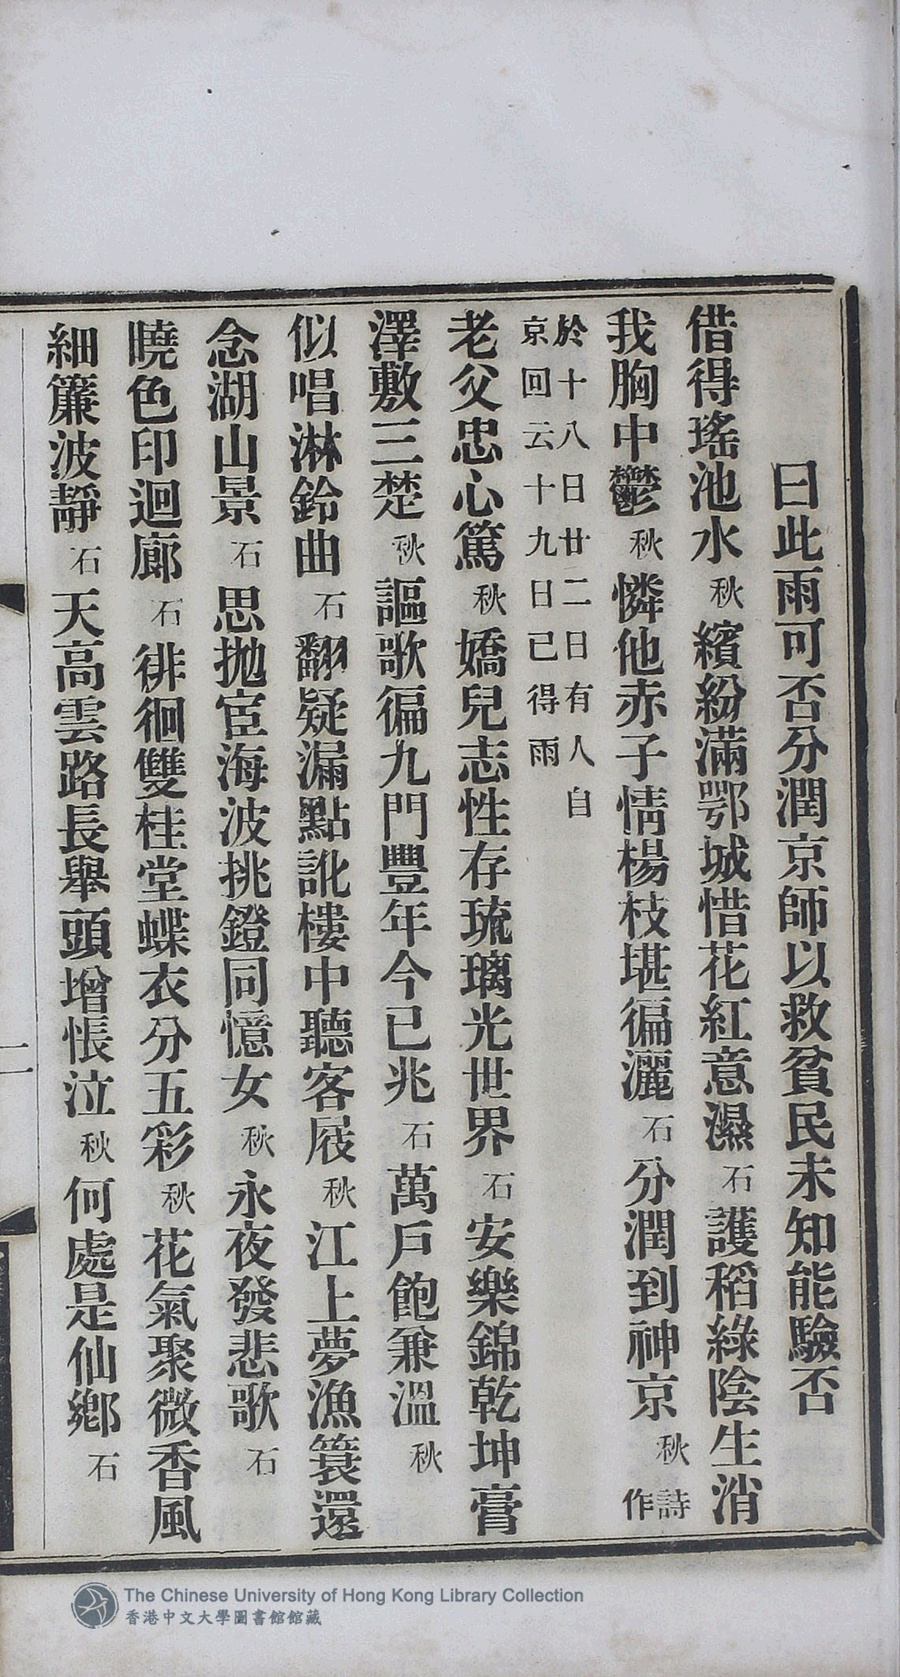 曰此雨可否分潤京師以救貧民未知能驗否
借得瑤池水秋繽紛滿鄂城惜花紅意濕石護稻綠陰生消
我胸中鬱秋憐他赤子情楊枝堪徧灑石分潤到神京秋詩作
於十八日廿二日有人自
京回云十九日已得雨
老父忠心篤秋嬌兒志性存琉璃光世界石安樂錦乾坤膏
澤敷三楚秋謳歌徧九門豐年今已兆石萬戶飽兼溫秋
似唱淋鈴曲石翻疑漏點訛樓中聽客屐秋江上夢漁簑還
念湖山景石思拋宦海波挑鐙同憶女秋永夜發悲歌石
曉色印迴廊石徘徊雙桂堂蝶衣分五彩秋花氣聚微香風
細簾波靜石天高雲路長舉頭增悵泣秋何處是仙鄉石
二
The Chinese University of Hong Kong Library Collection
香港中文大學圖書館館藏